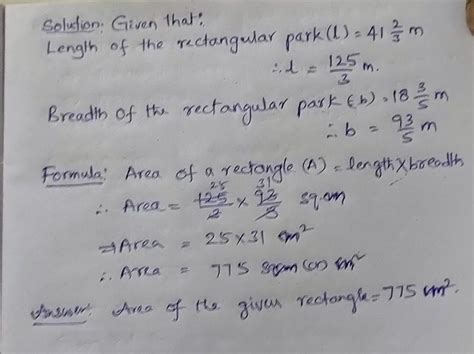 Solution: Given that:
Length of the rectangular park (l) = 41 2/3 m
∴ l = 125/3 m.
Breadth of the rectangular park (b) = 18 3/5 m
∴ b = 93/5 m
Formula: Area of a rectangle (A) = length × breadth
25 31
∴ Area = 125/3 × 93/5 sq.cm
⇒ Area = 25 × 31 cm²
∴ Area = 775 sqcm (or) cm²
Answer: Area of the given rectangle = 775 cm².